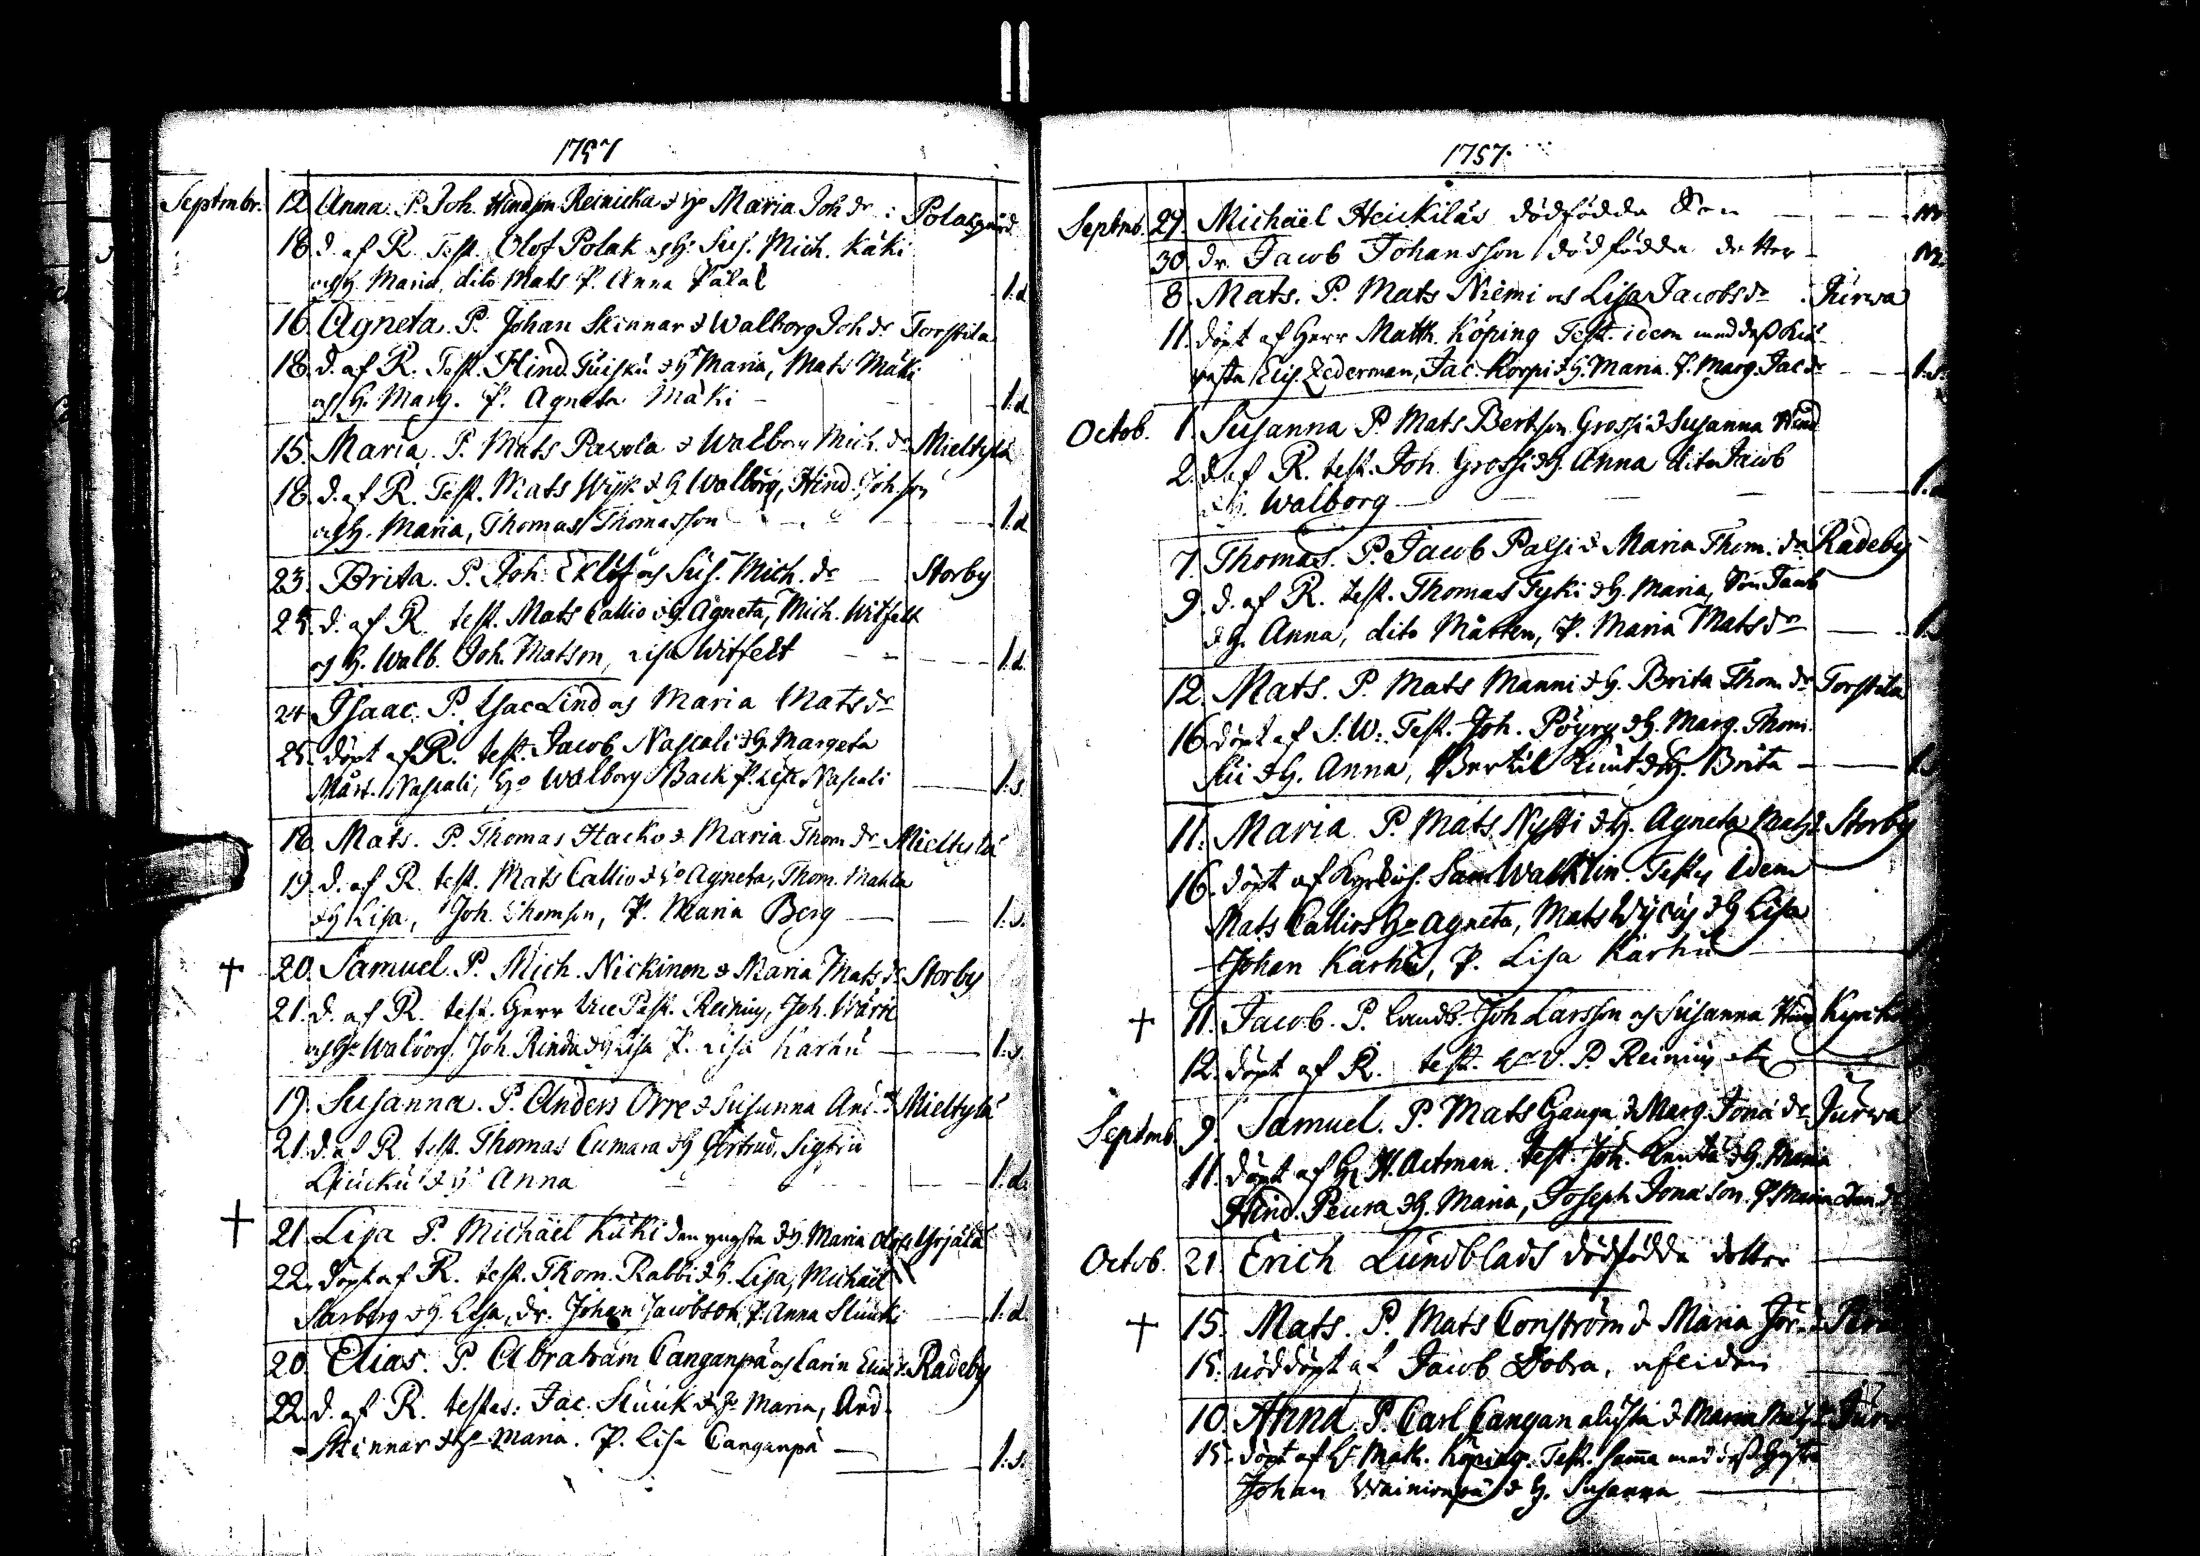 1757
Septmbr. 12. Anna. P. Joh. Hindson Reinicka & H° Maria Joh dr: Polakgård
18. d. af R. Test. Olof Polak og H: Sus. Mich. Käki
og H. Maria, dito Mats P. Anna Pålak 1.d.
16. Agneta. P. Johan Skinnar & Walborg Joh dr Torstila
18. d. af R. Test. Hind. Tuisku & H° Maria, Mats Mäki
og H. Marg. P. Agneta Mäki 1.d.
15. Maria. P. Mats Pawola & Walborg Mich. dr Mieltylä
18. d. af R. Test. Mats Wyk & H Walborg, Hind. Joh.son
og H. Maria, Thomas Thomasson 1.d.
23. Brita. P. Joh. Eklöf og Sus. Mich. dr Storby
25. d. af R. test. Mats Callio & H. Agneta, Mich. Witfelt
og H. Walb. Joh. Matson, Lisa Witfelt 1.d.
24. Isaac. P. Isac Lind og Maria Mats dr
25. döpt af R. test. Jacob Nascali & H. Margeta
Mårt. Nascali, H° Walborg Back P. Lisa Nascali 1.s.
18. Mats. P. Thomas Hacko & Maria Thom dr Mieltylä
19. d. af R. test. Mats Callio & H° Agneta, Thom. Mahla
& H Lisa, Joh. Thomson, P. Maria Berg 1.s.
+ 20. Samuel. P. Mich. Nickinen & Maria Mats dr Storby
21. d. af R. test. Herr Vice Past. Reinius, Joh.
og H° Walborg. Joh. Rinda & H Lisa P. Lisa Karhu 1.s.
19. Susanna. P. Anders Orre & Susanna And. dr Mieltylä
21. d. af R. test. Thomas Cumara & H Gertrud, Sigfrid
& H° Anna 1.d.
+ 21. Lisa P. Michäel Käki den yngsta & H. Maria Olofs Yrjälä
22. döpt af R. test. Thom. Rabbi & H. Lisa, Michäel
Starberg & H. Lisa, dr. Johan Jacobson, P. Anna 1.d.
20. Elias. P. Abraham Canganpä og Carin Elia d. Radeby
22. d. af R. testes: Jac. Stuuk & H° Maria, And.
Skinnar & H° Maria. P. Lisa Canganpä 1.s.
1757.
Septmb. 29. Michäel Heickiläs dödfödda Son
30. dr. Jacob Johansson dödfödda dotter
8. Mats. P. Mats Niemi og Lisa Jacobs dr Jurwa
11. döpt af Herr Matth. Köping Test. idem med deß
Elis. Zederman, Jac. Korpi & H. Maria. P. Marg. Jac dr 1.s.
Octob. 1. Susanna P. Mats Bertson Grossi & Susanna Hind
2. d. af R. test. Joh. Grossi & H. Anna dito Jacob
& H. Walborg
7. Thomas. P. Jacob Passi & Maria Thom. dr Radeby
9. d. af R. test. Thomas Tyki & H. Maria, Son Jacob
& H. Anna, dito Mårten, P. Maria Mats dr
12. Mats. P. Mats Manni & H. Brita Thom dr Torstila
16. döpt af S. W. Test. Joh. Pöyry & H. Marg. Thom.
& H. Anna, Bertil & H. Brita
11. Maria P. Mats & H. Agneta Mats d. Storby
16. döpt af Sam Wacklin. Testes Idem
Mats Callio & H° Agneta, Mats & H Lisa
Johan Karhu, P. Lisa Karhu
+ 11. Jacob. P. Landb. Joh Larsson og Susanna Hind
12. döpt af R. test. V. P. Reinius etc
Septmb. 9. Samuel. P. Mats Ganga & Marg. Jona dr Jurwa
11. döpt af H. Actman. test. Joh. & H. Maria
Hind. Peura & H. Maria, Joseph Jonason. P. Maria
Octob. 21. Erich Lundblads dödfödda dotter
+ 15. Mats. P. Mats Conström & Maria
15. nöddöpt af Jacob Dobra, afliden
10. Anna. P. Carl Cangan & Maria Mats d.
15. döpt af H. Math. Köping. Test. Samma med deß
Johan Wainionpä & H. Susanna